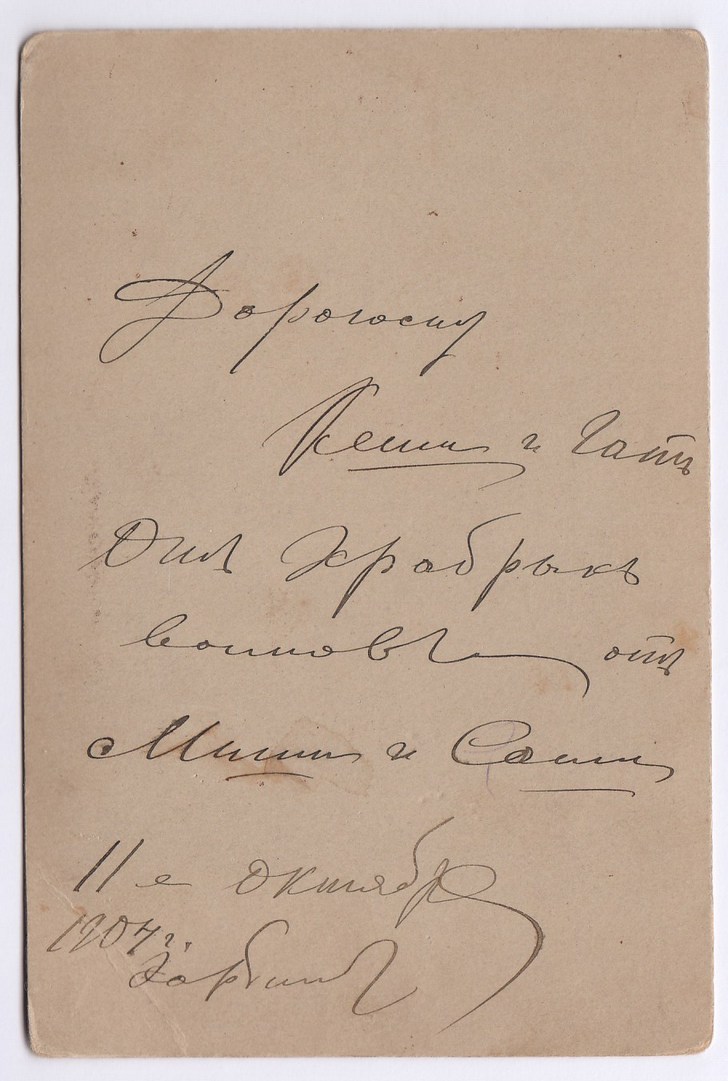 Дорогому
Кеши и
Отъ храбрыхъ
воиновъ отъ
Миши и Саши
11-е октября
1904 г.
Харбинъ